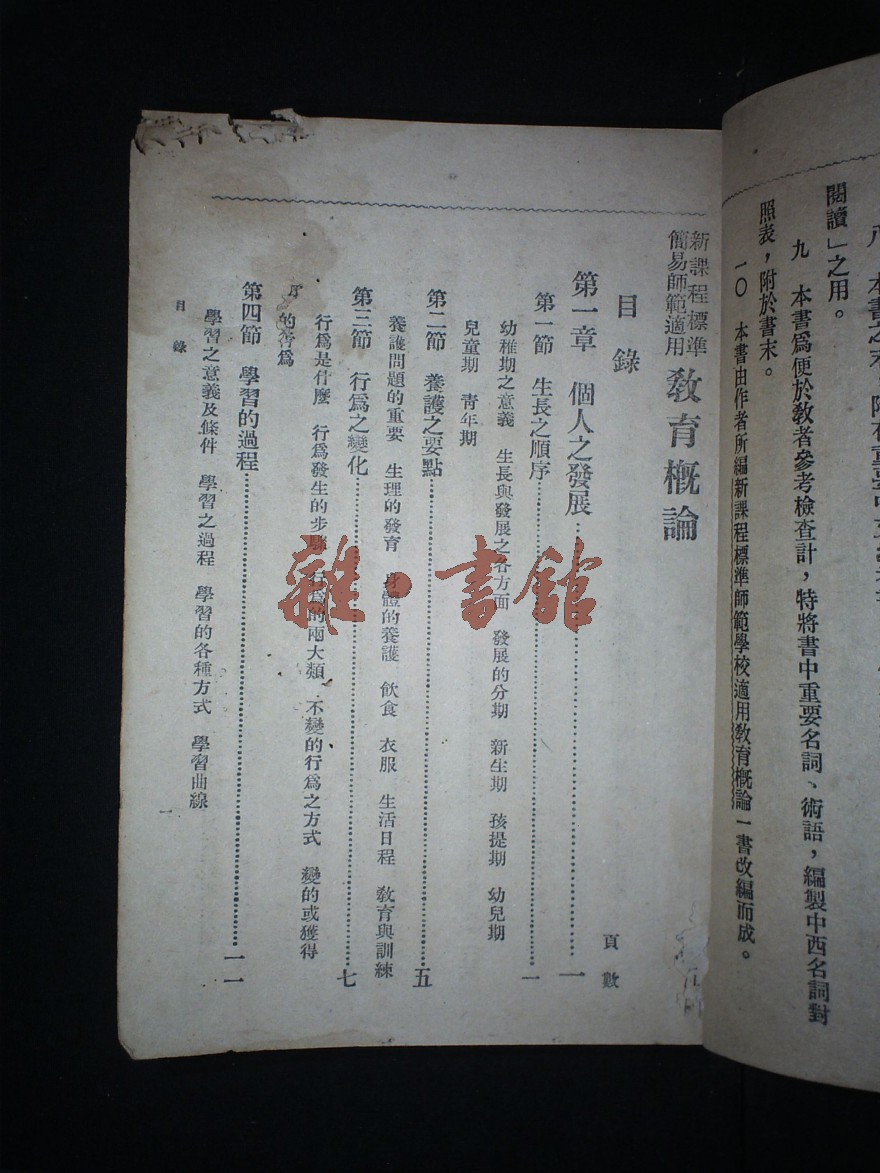 閱讀」之用。
九　本書爲便於敎者參考檢查計，特將書中重要名詞、術語，編製中西名詞對
照表，附於書末。
一〇　本書由作者所編新課程標準師範學校適用敎育槪論一書改編而成。
新課程標準
簡易師範適用
敎育槪論
目錄
頁數
第一章　個人之發展…………一
第一節　生長之順序…………一
幼稚期之意義　生長與發展之各方面　發展的分期　新生期　孩提期　幼兒期
兒童期　靑年期
第二節　養護之要點…………五
養護問題的重要　生理的發育　身體的養護　飮食　衣服　生活日程　敎育與訓練
第三節　行爲之變化…………七
行爲是什麼　行爲發生的步驟　行爲的兩大類　不變的行爲之方式　變的或獲得
的行爲
第四節　學習的過程…………一一
學習之意義及條件　學習之過程　學習的各種方式　學習曲線
目錄
一
雜·書館